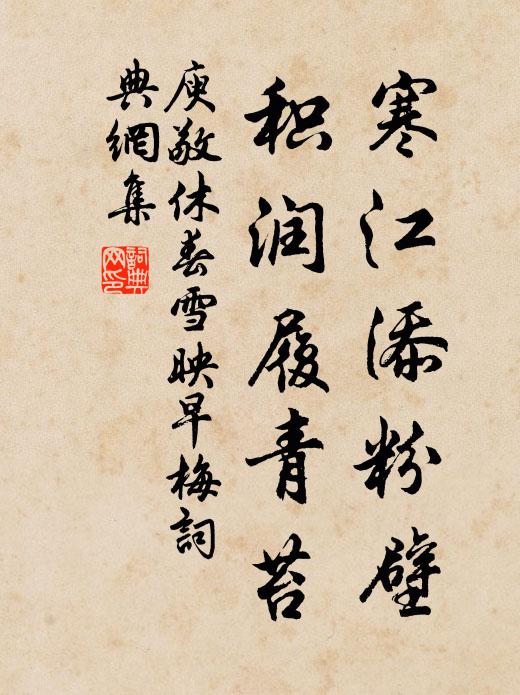 寒江添粉壁
积润履青苔
庾敬休春雪映早梅詞
典網集
詞典網印